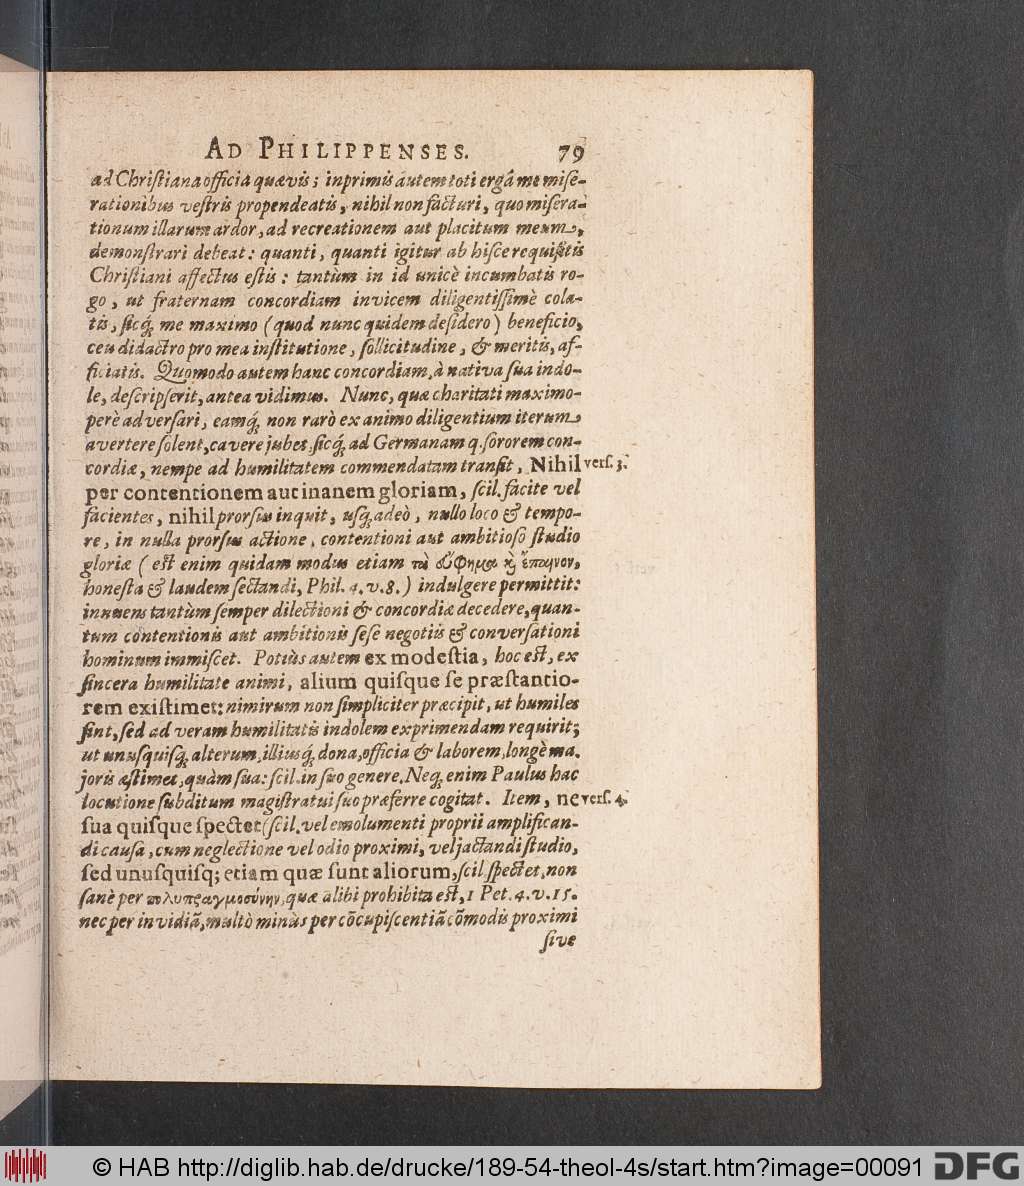 AD PHILIPPENSES. 79
ad Chriſtiana officia quævis; inprimis autem toti ergâ me miſe-
rationibus veſtris propendeatis, nihil non facturi, quo miſera-
tionum illarum ardor, ad recreationem aut placitum meum,
demonſtrari debeat: quanti, quanti igitur ab hiſce requiſitis
Chriſtiani affectus eſtis: tantùm in id unicè incumbatis ro-
go, ut fraternam concordiam invicem diligentiſſimè cola-
tis, ſicq́; me maximo (quod nunc quidem deſidero) beneficio,
ceu didactro pro mea inſtitutione, ſollicitudine, & meritis, af-
ficiatis. Quomodo autem hanc concordiam, à nativa ſua indo-
le, deſcripſerit, antea vidimus. Nunc, quæ charitati maximo-
perè adverſari, eamq́; non rarò ex animo diligentium iterum
avertere ſolent, cavere jubet, ſicq́; ad Germanam q. ſororem con-
cordiæ, nempe ad humilitatem commendatam tranſit, Nihil verſ. 3.
per contentionem aut inanem gloriam, ſcil. facite vel
facientes, nihil prorſus inquit, uſq; adeò, nullo loco & tempo-
re, in nulla prorſus actione, contentioni aut ambitioſo ſtudio
gloriæ (eſt enim quidam modus etiam τὰ ἔυφημα κ̀ ἔπαινον,
honeſta & laudem ſectandi, Phil. 4. v. 8.) indulgere permittit:
innuens tantùm ſemper dilectioni & concordiæ decedere, quan-
tum contentionis aut ambitionis ſeſe negotiis & converſationi
hominum immiſcet. Potiùs autem ex modeſtia, hoc eſt, ex
ſincera humilitate animi, alium quiſque ſe præſtantio-
rem exiſtimet: nimirum non ſimpliciter præcipit, ut humiles
ſint, ſed ad veram humilitatis indolem exprimendam requirit;
ut unuſquiſq; alterum, illiusq́; dona, officia & laborem, longè ma-
joris æſtimet, quàm ſua: ſcil. in ſuo genere. Neq; enim Paulus hac
locutione ſubditum magiſtratui ſuo præferre cogitat. Item, ne verſ. 4.
ſua quiſque ſpectet (ſcil. vel emolumenti proprii amplifican-
di cauſa, cum neglectione vel odio proximi, vel jactandi ſtudio,
ſed unuſquiſq; etiam quæ ſunt aliorum, ſcil. ſpectet, non
ſanè per πολυπραγμοσύνην, quæ alibi prohibita eſt, 1 Pet. 4. v. 15.
nec per invidiã, multò minùs per cõcupiſcentiã cõmodis proximi
ſive
© HAB http://diglib.hab.de/drucke/189-54-theol-4s/start.htm?image=00091 DFG